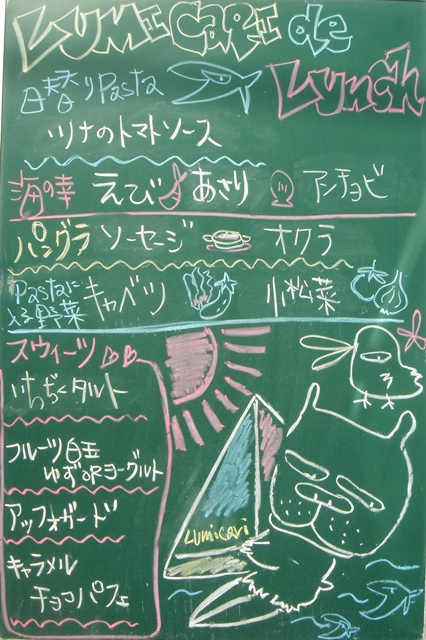 LUMICARI de
Lunch
日替りPasta
ツナのトマトソース
海の幸 えび あさり アンチョビ
パングラ ソーセージ オクラ
Pastaに
よる野菜 キャベツ 小松菜
スウィーツ
いちぢくタルト
フルーツ白玉
ゆずorヨーグルト
アッフォガード
キャラメル
チョコパフェ
Lumicari